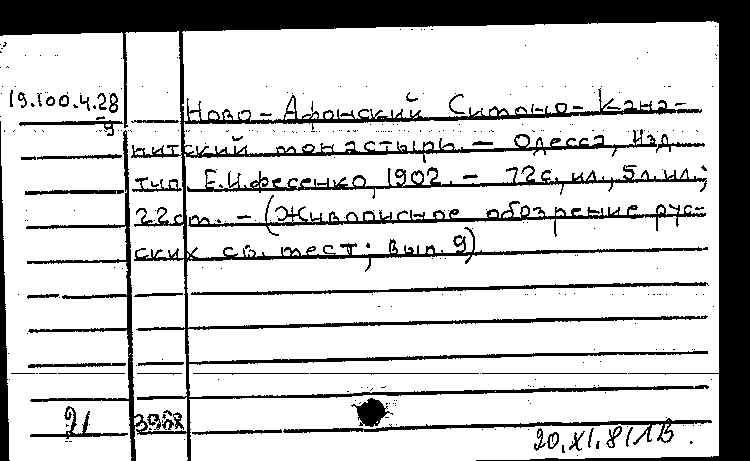 19.100.4.28
-9
Ново-Афонский Симоно-Кана-
нитский монастырь. — Одесса, Изд.
тип. Е.И. Фесенко, 1902. — 72с., ил., 5л. ил.;
22 см. — (Живописное обозрение рус-
ских св. мест; Вып. 9)
91 3968
20.XI.81